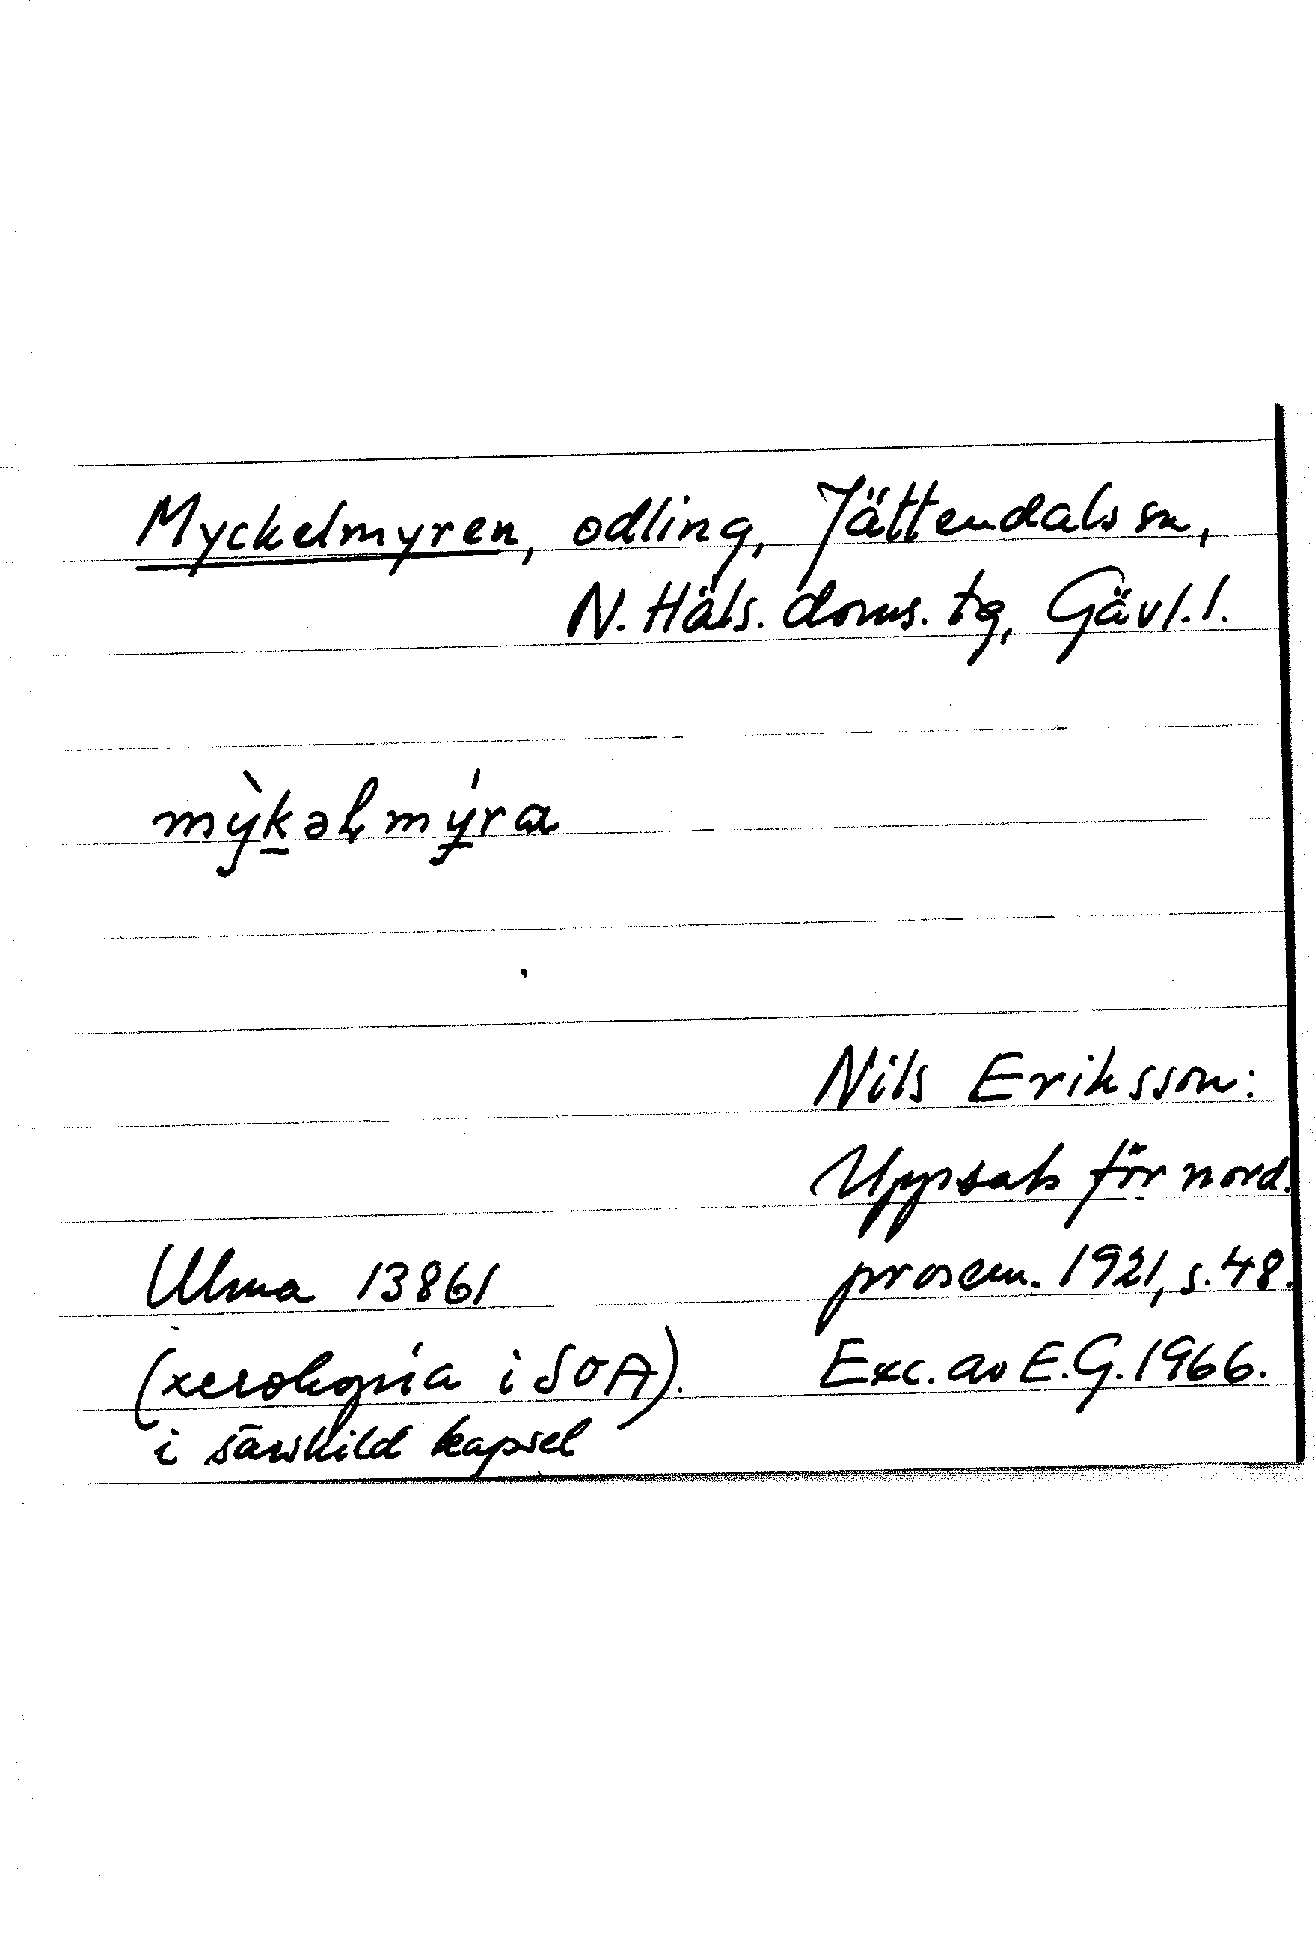 Myckelmyren, odling, Jättendals sn,
N. Häls. doms. tg, Gävl. l.
mỳk̲əɫmýra
Nils Eriksson:
Uppsats för nord.
prosem. 1921, s. 48.
Exc. av E.G. 1966.
Ulma 13861
(xerokopia i SOA).
i särskild kapsel